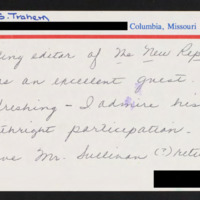 S. Trahern
Columbia, Missouri
ing editor of The New Rep
as an excellent guest.
reshing - I admire his
thright participation.
ve Mr. Sullivan (?) retu